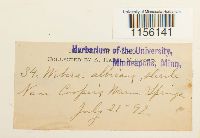 University of Minnesota Herbarium
1156141
Herbarium of the University,
COLLECTED BY
Minneapolis, Minn.
34. Webera albicans, sterile
Near Cooper's, Warm Springs
July 21 '92